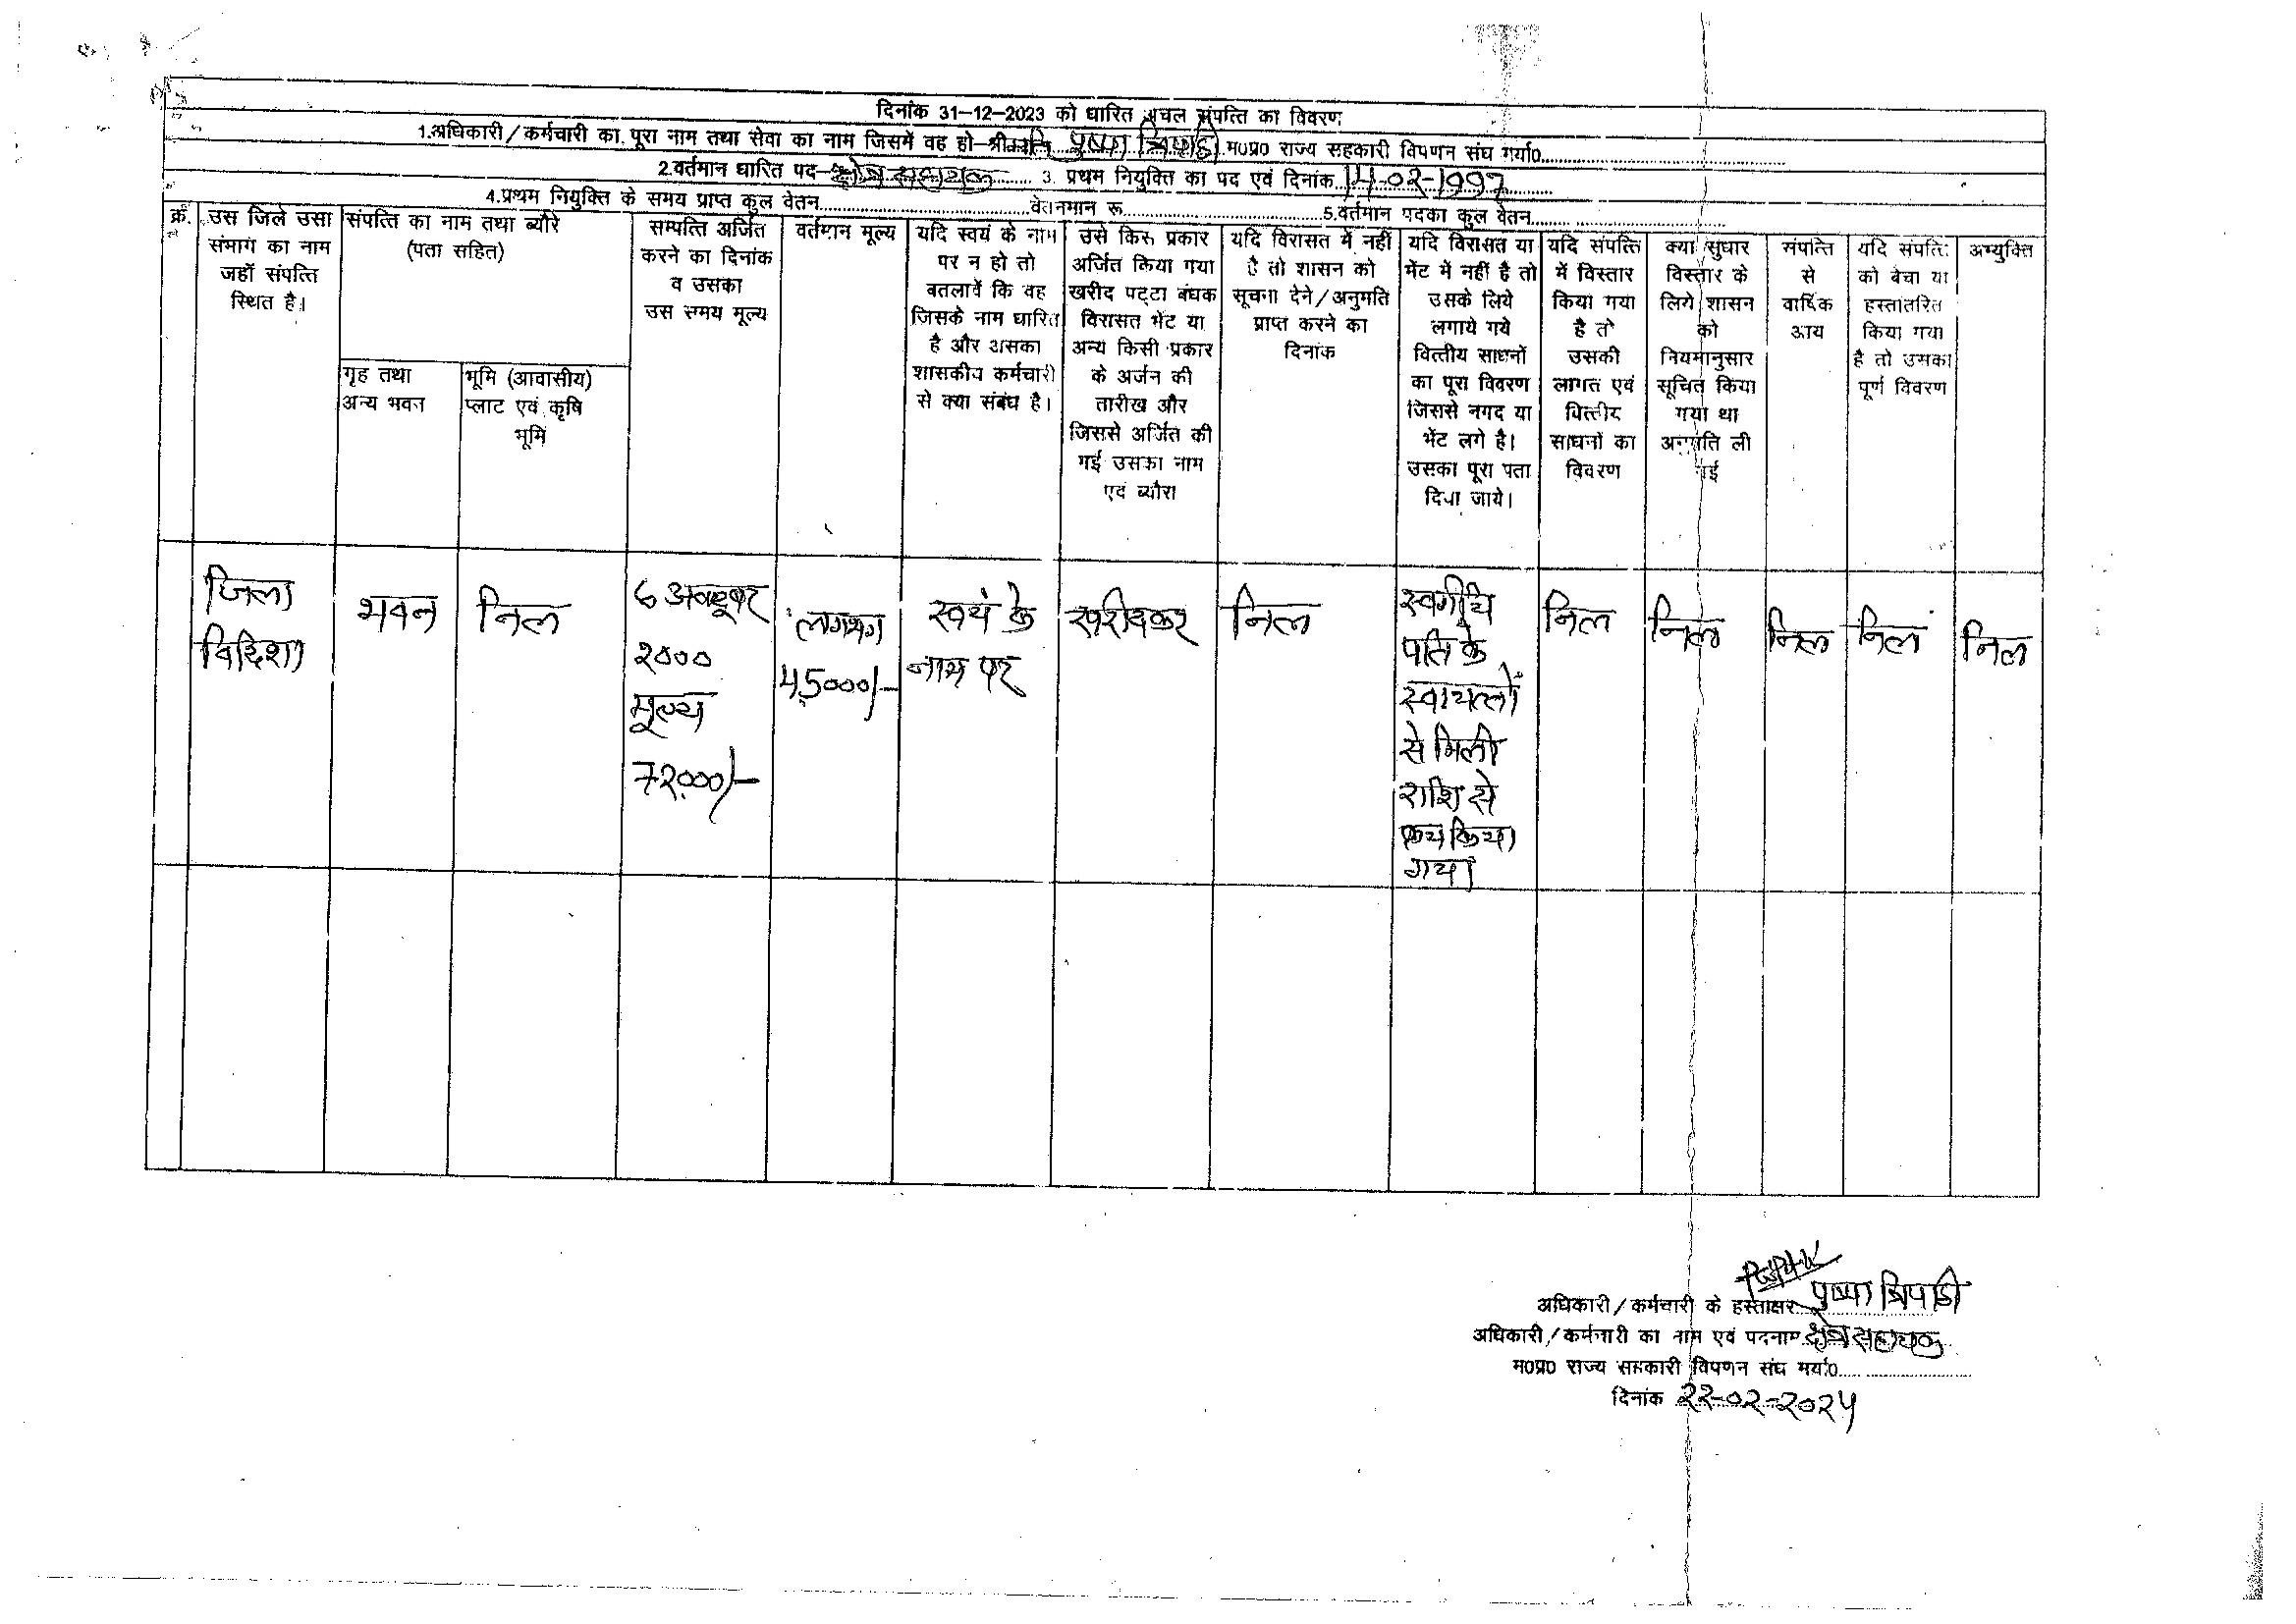 दिनांक 31-12-2023 को धारित अचल संपत्ति का विवरण
1.अधिकारी/कर्मचारी का पूरा नाम तथा सेवा का नाम जिसमें वह हो-श्रीमति पुष्पा त्रिपाठी म0प्र0 राज्य सहकारी विपणन संघ मर्या0
2.वर्तमान धारित पद-क्षेत्र सहायक 3. प्रथम नियुक्ति का पद एवं दिनांक 14-02-1997
4.प्रथम नियुक्ति के समय प्राप्त कुल वेतन वेतनमान रू 5.वर्तमान पदका कुल वेतन
क्रं.
उस जिले उसा
संभाग का नाम
जहाँ संपत्ति
स्थित है।
संपत्ति का नाम तथा ब्यौरे
(पता सहित)
गृह तथा
अन्य भवन
भूमि (आवासीय)
प्लाट एवं कृषि
भूमि
सम्पत्ति अर्जित
करने का दिनांक
व उसका
उस समय मूल्य
वर्तमान मूल्य
यदि स्वयं के नाम
पर न हो तो
बतलावें कि वह
जिसके नाम धारित
है और असका
शासकीय कर्मचारी
से क्या संबंध है।
उसे किस प्रकार
अर्जित किया गया
खरीद पट्टा बंधक
विरासत भेंट या
अन्य किसी प्रकार
के अर्जन की
तारीख और
जिससे अर्जित की
गई उसका नाम
एवं ब्यौरा
यदि विरासत में नहीं
है तो शासन को
सूचना देने/अनुमति
प्राप्त करने का
दिनांक
यदि विरासत या
भेंट में नहीं है तो
उसके लिये
लगाये गये
वित्तीय साधनों
का पूरा विवरण
जिससे नगद या
भेंट लगे है।
उसका पूरा पता
दिया जाये।
यदि संपत्ति
में विस्तार
किया गया
है तो
उसकी
लागत एवं
वित्तीय
साधनों का
विवरण
क्या सुधार
विस्तार के
लिये शासन
को
नियमानुसार
सूचित किया
गया था
अनुमति ली
गई
संपत्ति
से
वार्षिक
आय
यदि संपत्ति
को बेचा या
हस्तांतरित
किया गया
है तो उसका
पूर्ण विवरण
अभ्युक्ति
जिला
विदिशा
भवन
निल
6 अक्टूबर
२०००
मूल्य
72000/-
लगभग
45000/-
स्वयं के
नाम पर
खरीदकर
निल
स्वर्गीय
पति के
स्वायत्तों
से मिली
राशि से
क्रय किया
गया
निल
निल
निल
निल
निल
अधिकारी/कर्मचारी के हस्ताक्षर पुष्पा त्रिपाठी
अधिकारी/कर्मचारी का नाम एवं पदनाम क्षेत्र सहायक
म0प्र0 राज्य सहकारी विपणन संघ मर्या0
दिनांक २२-०२-२०२४